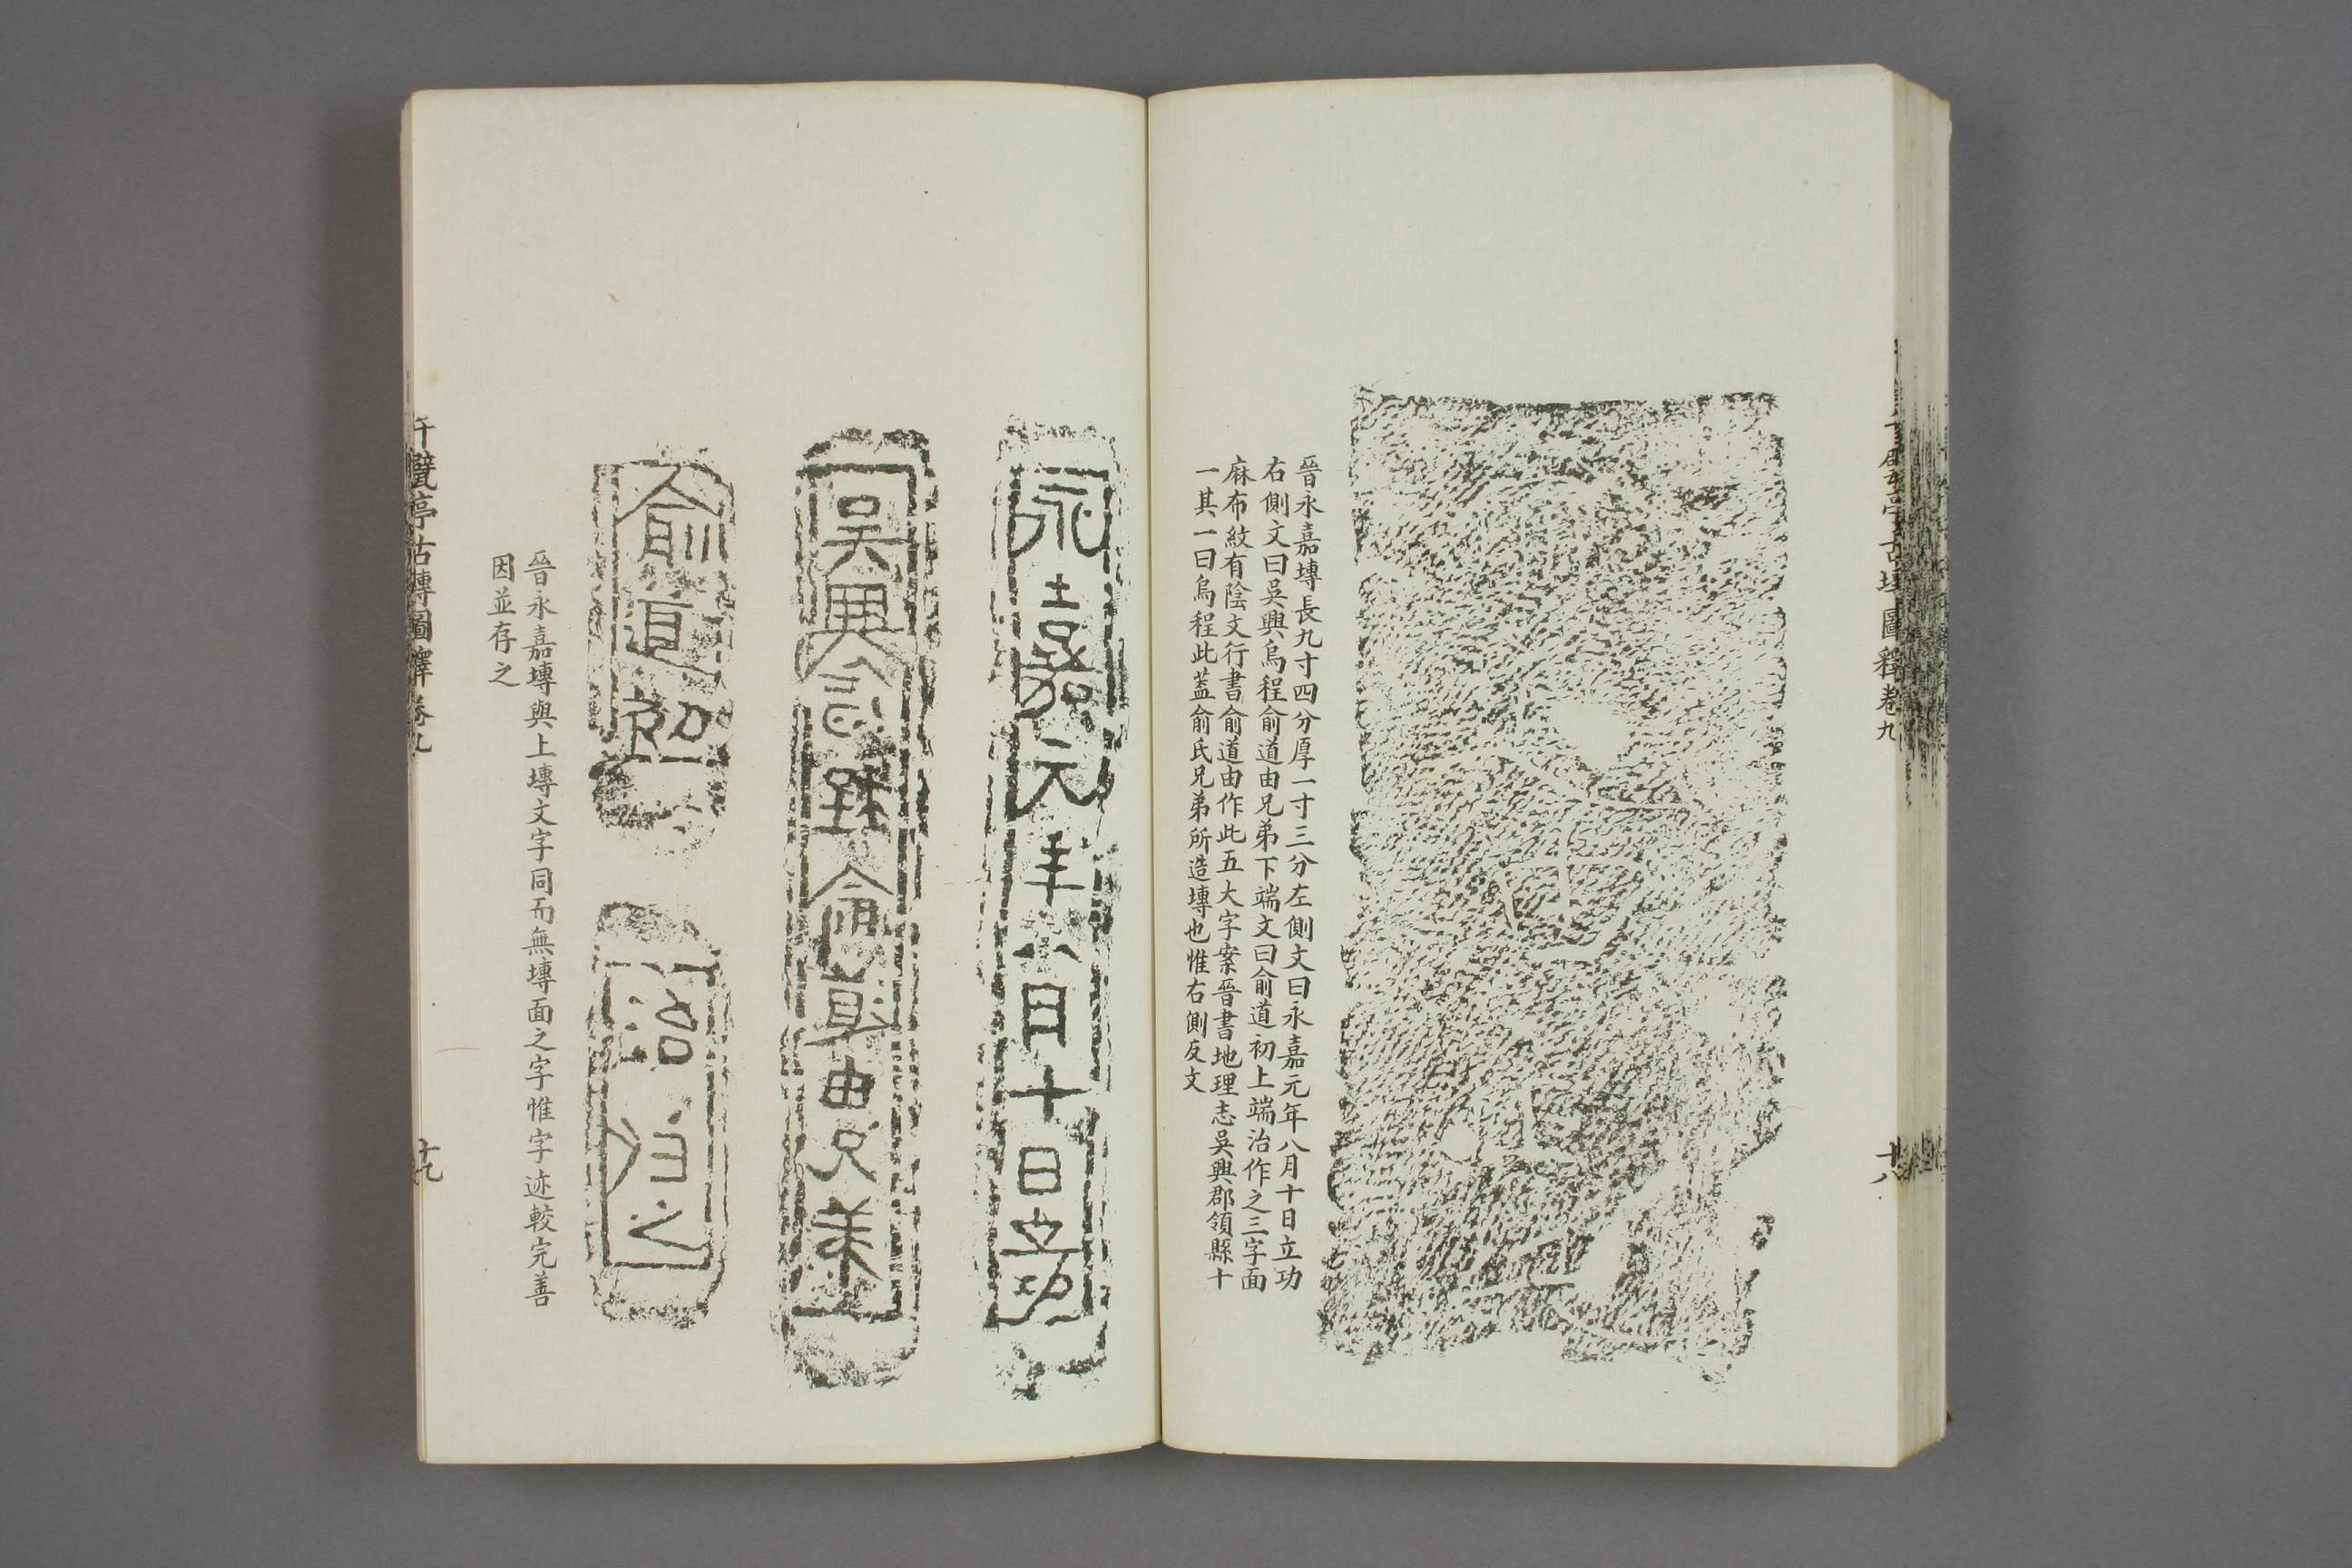 圖釋卷九
十八
晉永嘉塼長九寸四分厚一寸三分左側文曰永嘉元年八月十日立功
右側文曰吳興烏程俞道由兄弟下端文曰俞道初上端治作之三字面
麻布紋有陰文行書俞道由作此五大字案晉書地理志吳興郡領縣十
一其一曰烏程此蓋俞氏兄弟所造塼也惟右側反文
永嘉元年八月十日立功
吳興烏程俞道由兄弟
俞道初
治作之
晉永嘉塼與上塼文字同而無塼面之字惟字迹較完善
因並存之
千甓亭古塼圖釋卷九
十九